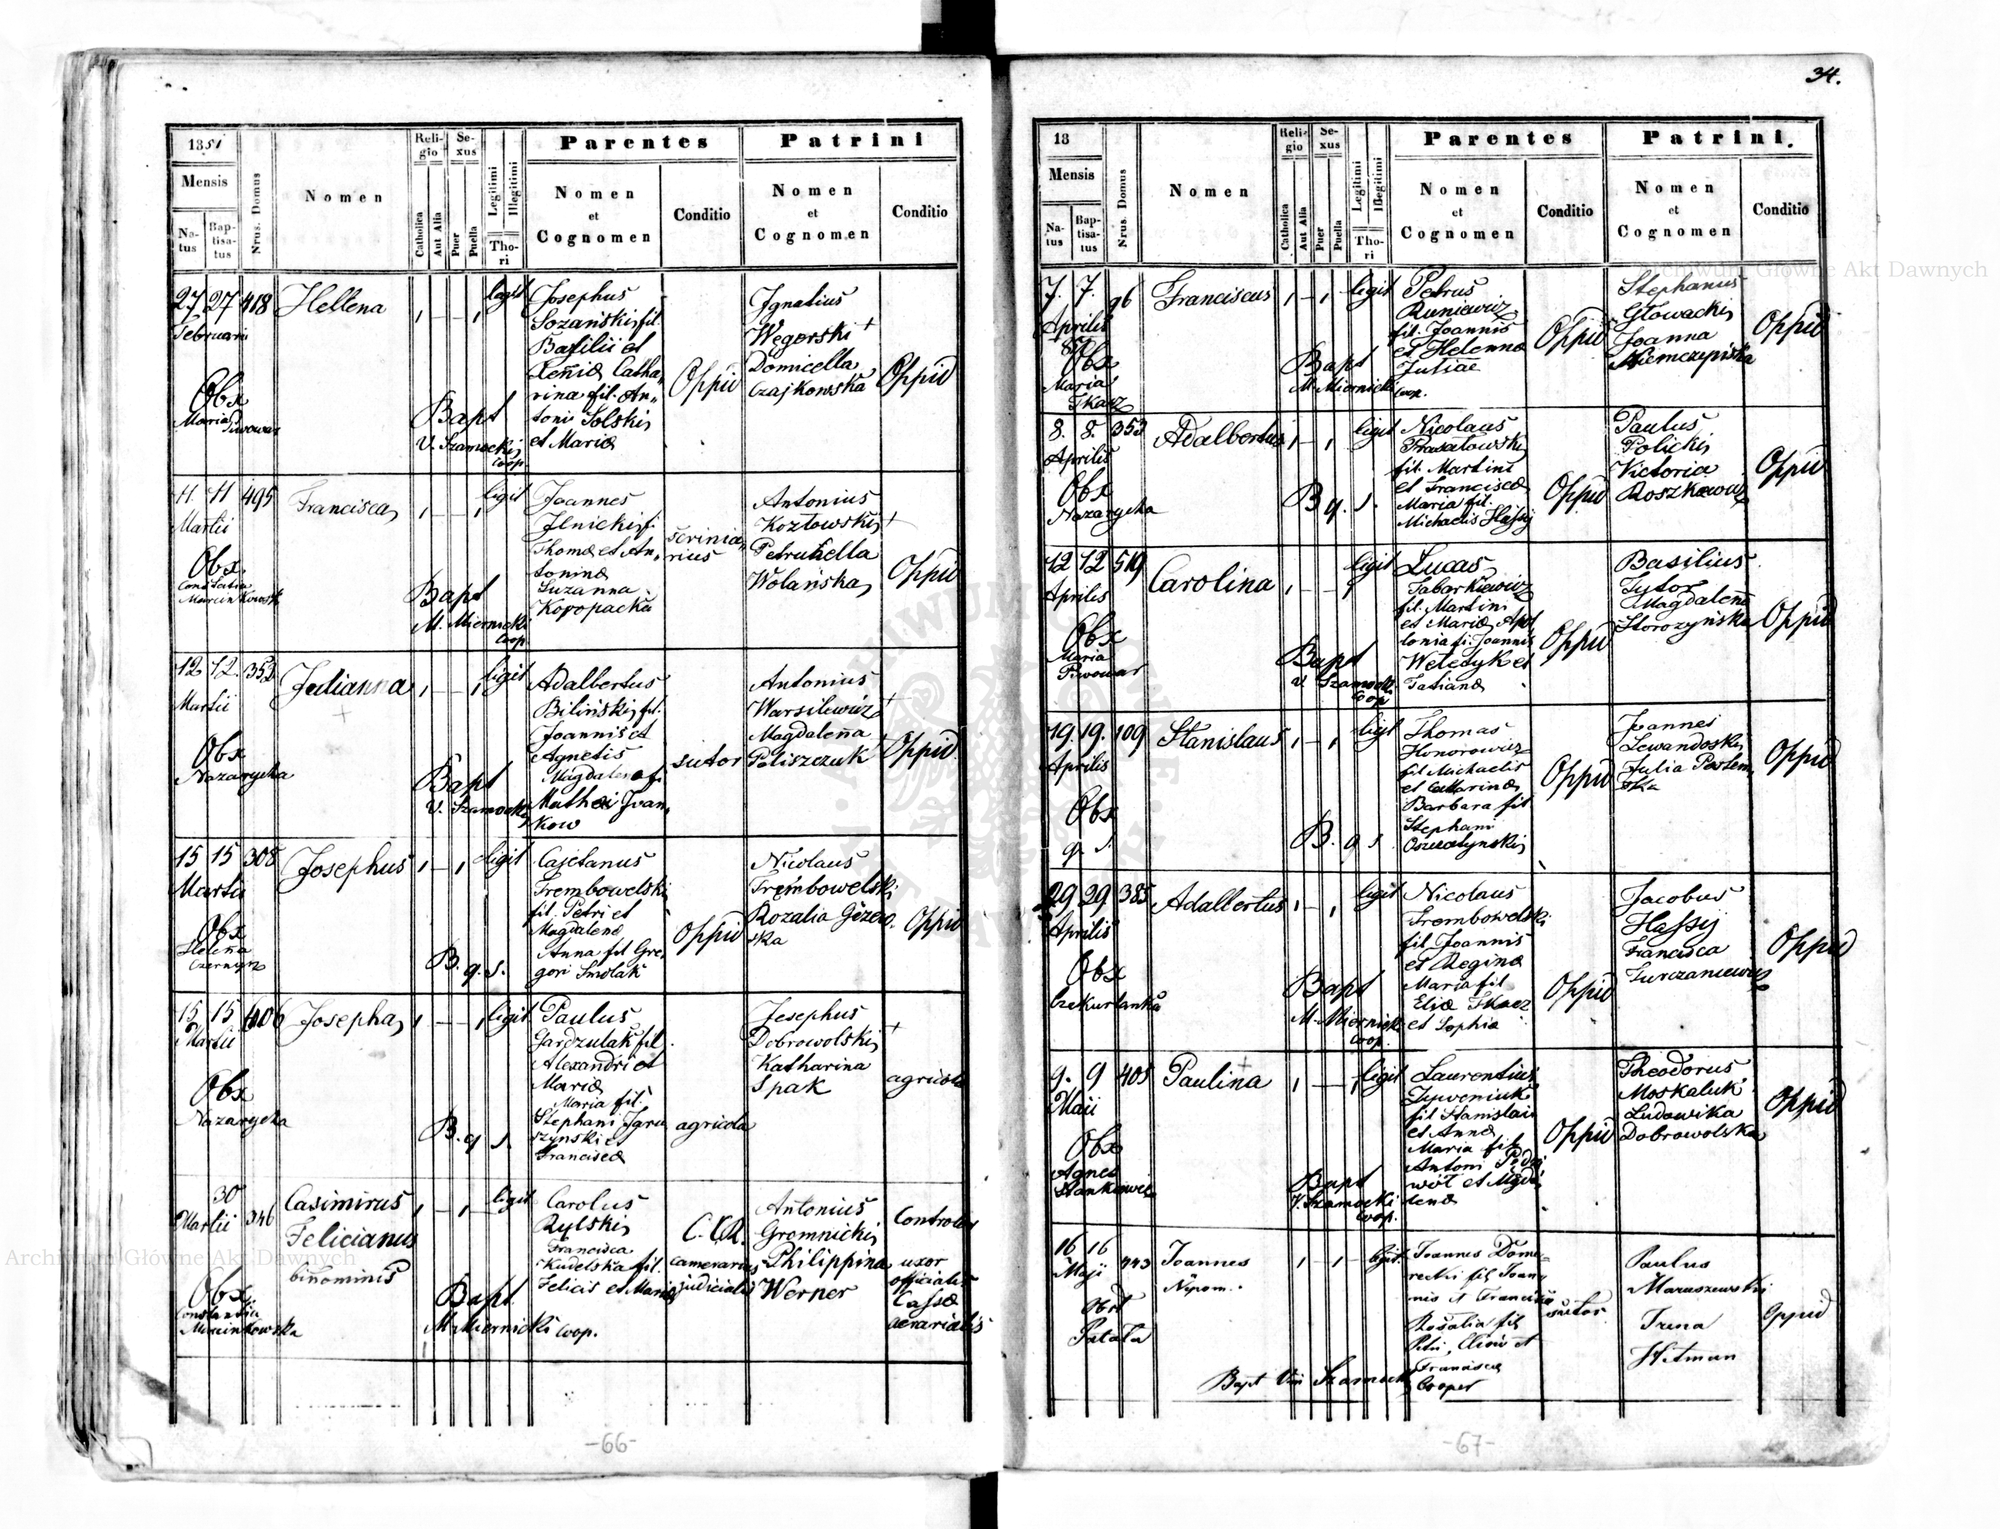 34.
1851
Mensis
Natus
Baptisatus
Nrus. Domus
Nomen
Religio
Catholica
Aut Alia
Sexus
Puer
Puella
Legitimi
Illegitimi
Thori
Parentes
Nomen
et
Cognomen
Conditio
Patrini
Nomen
et
Cognomen
Conditio
27 27 418
Februarii
Obx
Maria Piwowar
Hellena
legit
Bapt
V. Szamocki
coop
Josephus
Sozański fil.
Basilii et
Xenia Catha,
rina fil. An,,
toni Solski
et Maria
Oppid
Ignatius
Węgerski +
Domicella
Czajkowska
Oppid
11 11 495
Martii
Obx
Constantia
Marcinkowsk
Francisca
legit
Bapt
M. Miernicki
coop
Joannes
Jlnicki f.
Thoma et An,
tonina
Suzanna
Kopopacka
scrinia,
rius
Antonius
Kozłowski +
Petrunella
Wolańska
Oppid
12 12. 352
Martii
Obx
Nazarycha
Julianna
legit
Bapt
V. Szamocki
Adalbertus
Biliński fil.
Joannis et
Agnetis
Magdalena fi
Mathei Jvan,
kow
sutor
Antonius
Warsilewicz +
Magdalena
Poliszczuk
Oppid
15 15 308
Martii
Obx
Helena
Czerniyez
Josephus
legit
B. q. s.
Cajetanus
Trembowelski
fil. Petri et
Magdalena
Anna fil Gre,
gori Smolak
Oppid
Nicolaus
Trembowelski
Rozalia Gizew,
ska
Oppid
15 15 406
Martii
Obx
Nazarycha
Josepha
legit
B. q. s.
Paulus
Gardzulak fil
Alexandri et
Maria
Maria fil.
Stephani Jgru
szynski et
Francisca
agricola
Josephus +
Dobrowolski
Katharina
Spak
agricola
30
Martii 346
Obx
Constantia
Marcinkowska
Casimirus
Felicianus
binominis
legit
Bapt
M. Miernicki coop.
Carolus
Rylski
Francisca
Kudelska fil.
Felicis et Maria
C. R.
camerarius
judicialis
Antonius
Gromnicki
Philippina
Werner
Controlor
uxor
officialis
Cassa
aerarialis
-66-
13
Mensis
Natus
Baptisatus
Nrus. Domus
Nomen
Religio
Catholica
Aut Alia
Sexus
Puer
Puella
Legitimi
Illegitimi
Thori
Parentes
Nomen
et
Cognomen
Conditio
Patrini.
Nomen
et
Cognomen
Conditio
7. 7. 96
Aprilis
Obx
Maria
Tkacz
Franciscus
legit
Bapt
M. Miernicki
coop.
Petrus
Runiewicz
fil. Joannis
et Helenna
Juliae
Oppid
Stephanus
Głowacki
Joanna
Niemczyńska
Oppid
8. 8. 353
Aprilis
Obx
Nazarycha
Adalbertus
legit
B q. s.
Nicolaus
Prasałowski
fil. Martini
et Francisca
Maria fil.
Michaelis Hassij
Oppid
Paulus
Policki
Victoria
Roszkowicz
Oppid
12 12 519
Aprilis
Obx
Maria
Piwowar
Carolina
legit
Bapt
V. Szamocki
coop
Lucas
Tabarkiewicz
fil. Martini
et Maria Apol
lonia fi. Joannis
Weledyk et
Tatiana
Oppid
Basilius
Tutor
Magdalena
Storozyńska
Oppid
19. 19. 109
Aprilis
Obx
q. s.
Stanislaus
legit
B. q s.
Thomas
Honorowicz
fil Michaelis
et Catharina
Barbara fil
Stephani
Oszcatynski
Oppid
Joannes
Lewandoski
Julia Parlem,
ska
Oppid
29 29 385
Aprilis
Obx
Czekurlanka
Adalbertus
legit
Bapt
M. Miernick
coop.
Nicolaus
Trembowelski
fil Joannis
et Regina
Maria fil
Elia Tkacz
et Sophia
Oppid
Jacobus
Hassij
Francisca
Turczaniewicz
Oppid
9. 9 405
Maii
Obx
Agnes
Stankowicz
Paulina
legit
Bapt
V. Szamocki
coop.
Laurentius
Zyweniuk
fil Stanislai
et Anna
Maria fil.
Antoni Pędzi
wót et Magda
lena
Oppid
Theodorus
Moskaluk
Ludowika
Dobrowolska
Oppid
16 16
Maji 443
Obst
Patała
Joannes
Nepom.
legit.
Bapt Vin Szamocki
Joannes Dome-
recki fil Joan-
nis et Francisca
Rosalia fil
Petri et
Francisca
Cooper
sutor
Paulus
Maruszewski
Irena
Hitman
Oppid
-67-
Archiwum Główne Akt Dawnych
Archiwum Główne Akt Dawnych
ARCHIWUM GŁÓWNE AKT DAWNYCH